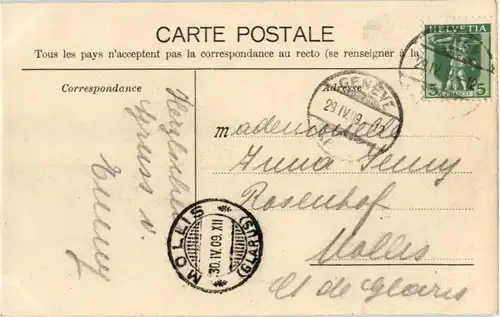 CARTE POSTALE
Tous les pays n'acceptent pas la correspondance au recto (se renseigner à la
Correspondance
Adresse
Herzlichen
Gruss v.
Emmy
Mademoiselle
Anna Jenny
Rosenhof
Mollis
Ct de Glaris
GENÈVE
29 IV.09
MOLLIS
30.IV.09.XII
(GLARUS)
HELVETIA
5 5
FRANCO